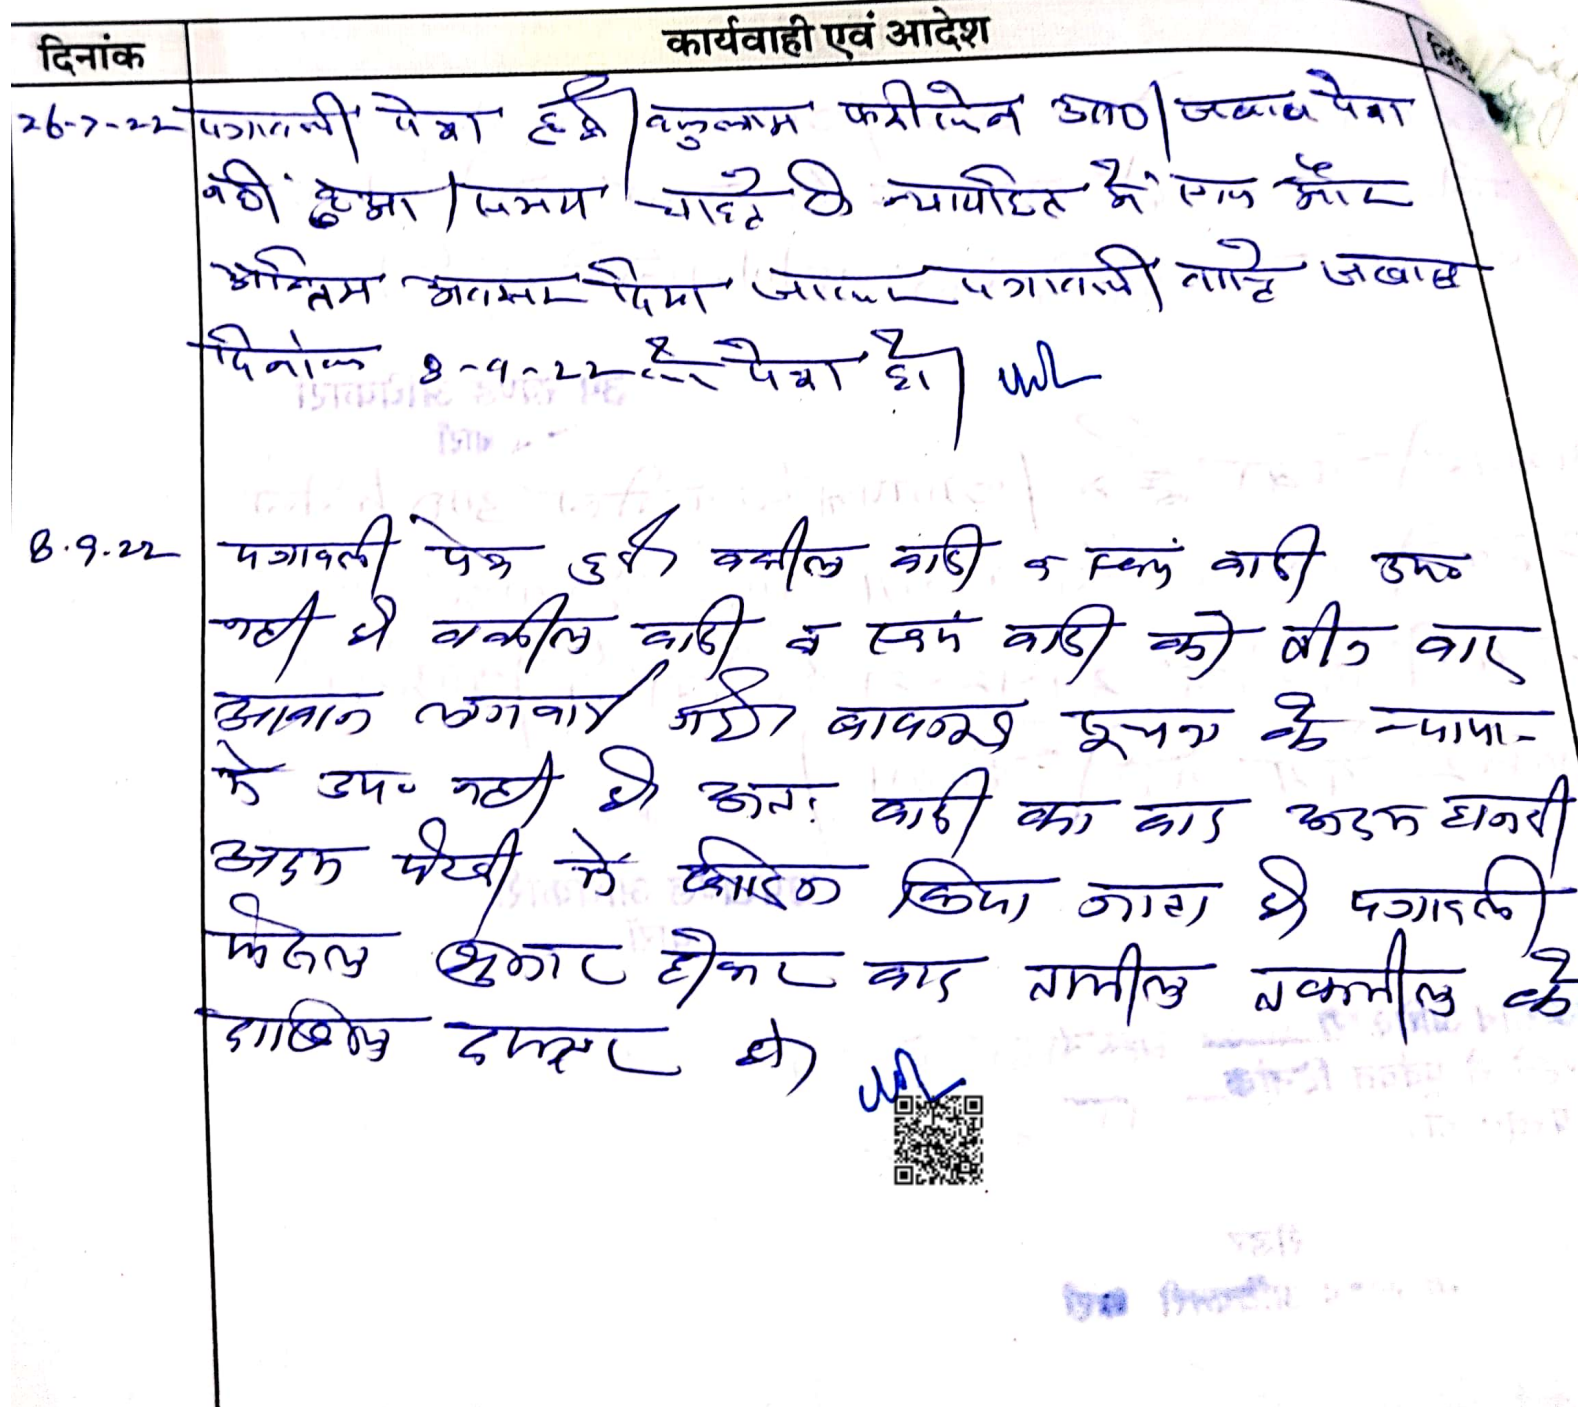 दिनांक
कार्यवाही एवं आदेश
26-7-22 पत्रावली पेश हुई। वकुलाय फरीकेन उप0। जवाब पेश
नहीं हुआ। समय चाहते है न्यायहित में एक और
अन्तिम अवसर दिया जाकर पत्रावली वास्ते जवाब
दिनांक 8-9-22 को पेश हो।
8.9.22 पत्रावली पेश हुई वकील वादी व स्वयं वादी उप०
नही है वकील वादी व स्वयं वादी को तीन बार
आवाज लगवाई गयी बावजूद सूचना के न्याया-
मे उप० नही है अतः वादी का वाद अदम हाजरी
अदम पैरवी मे खारिज किया जाता है पत्रावली
फैसल शुमार होकर बाद तामील तकमील के
दाखिल दफ्तर हो